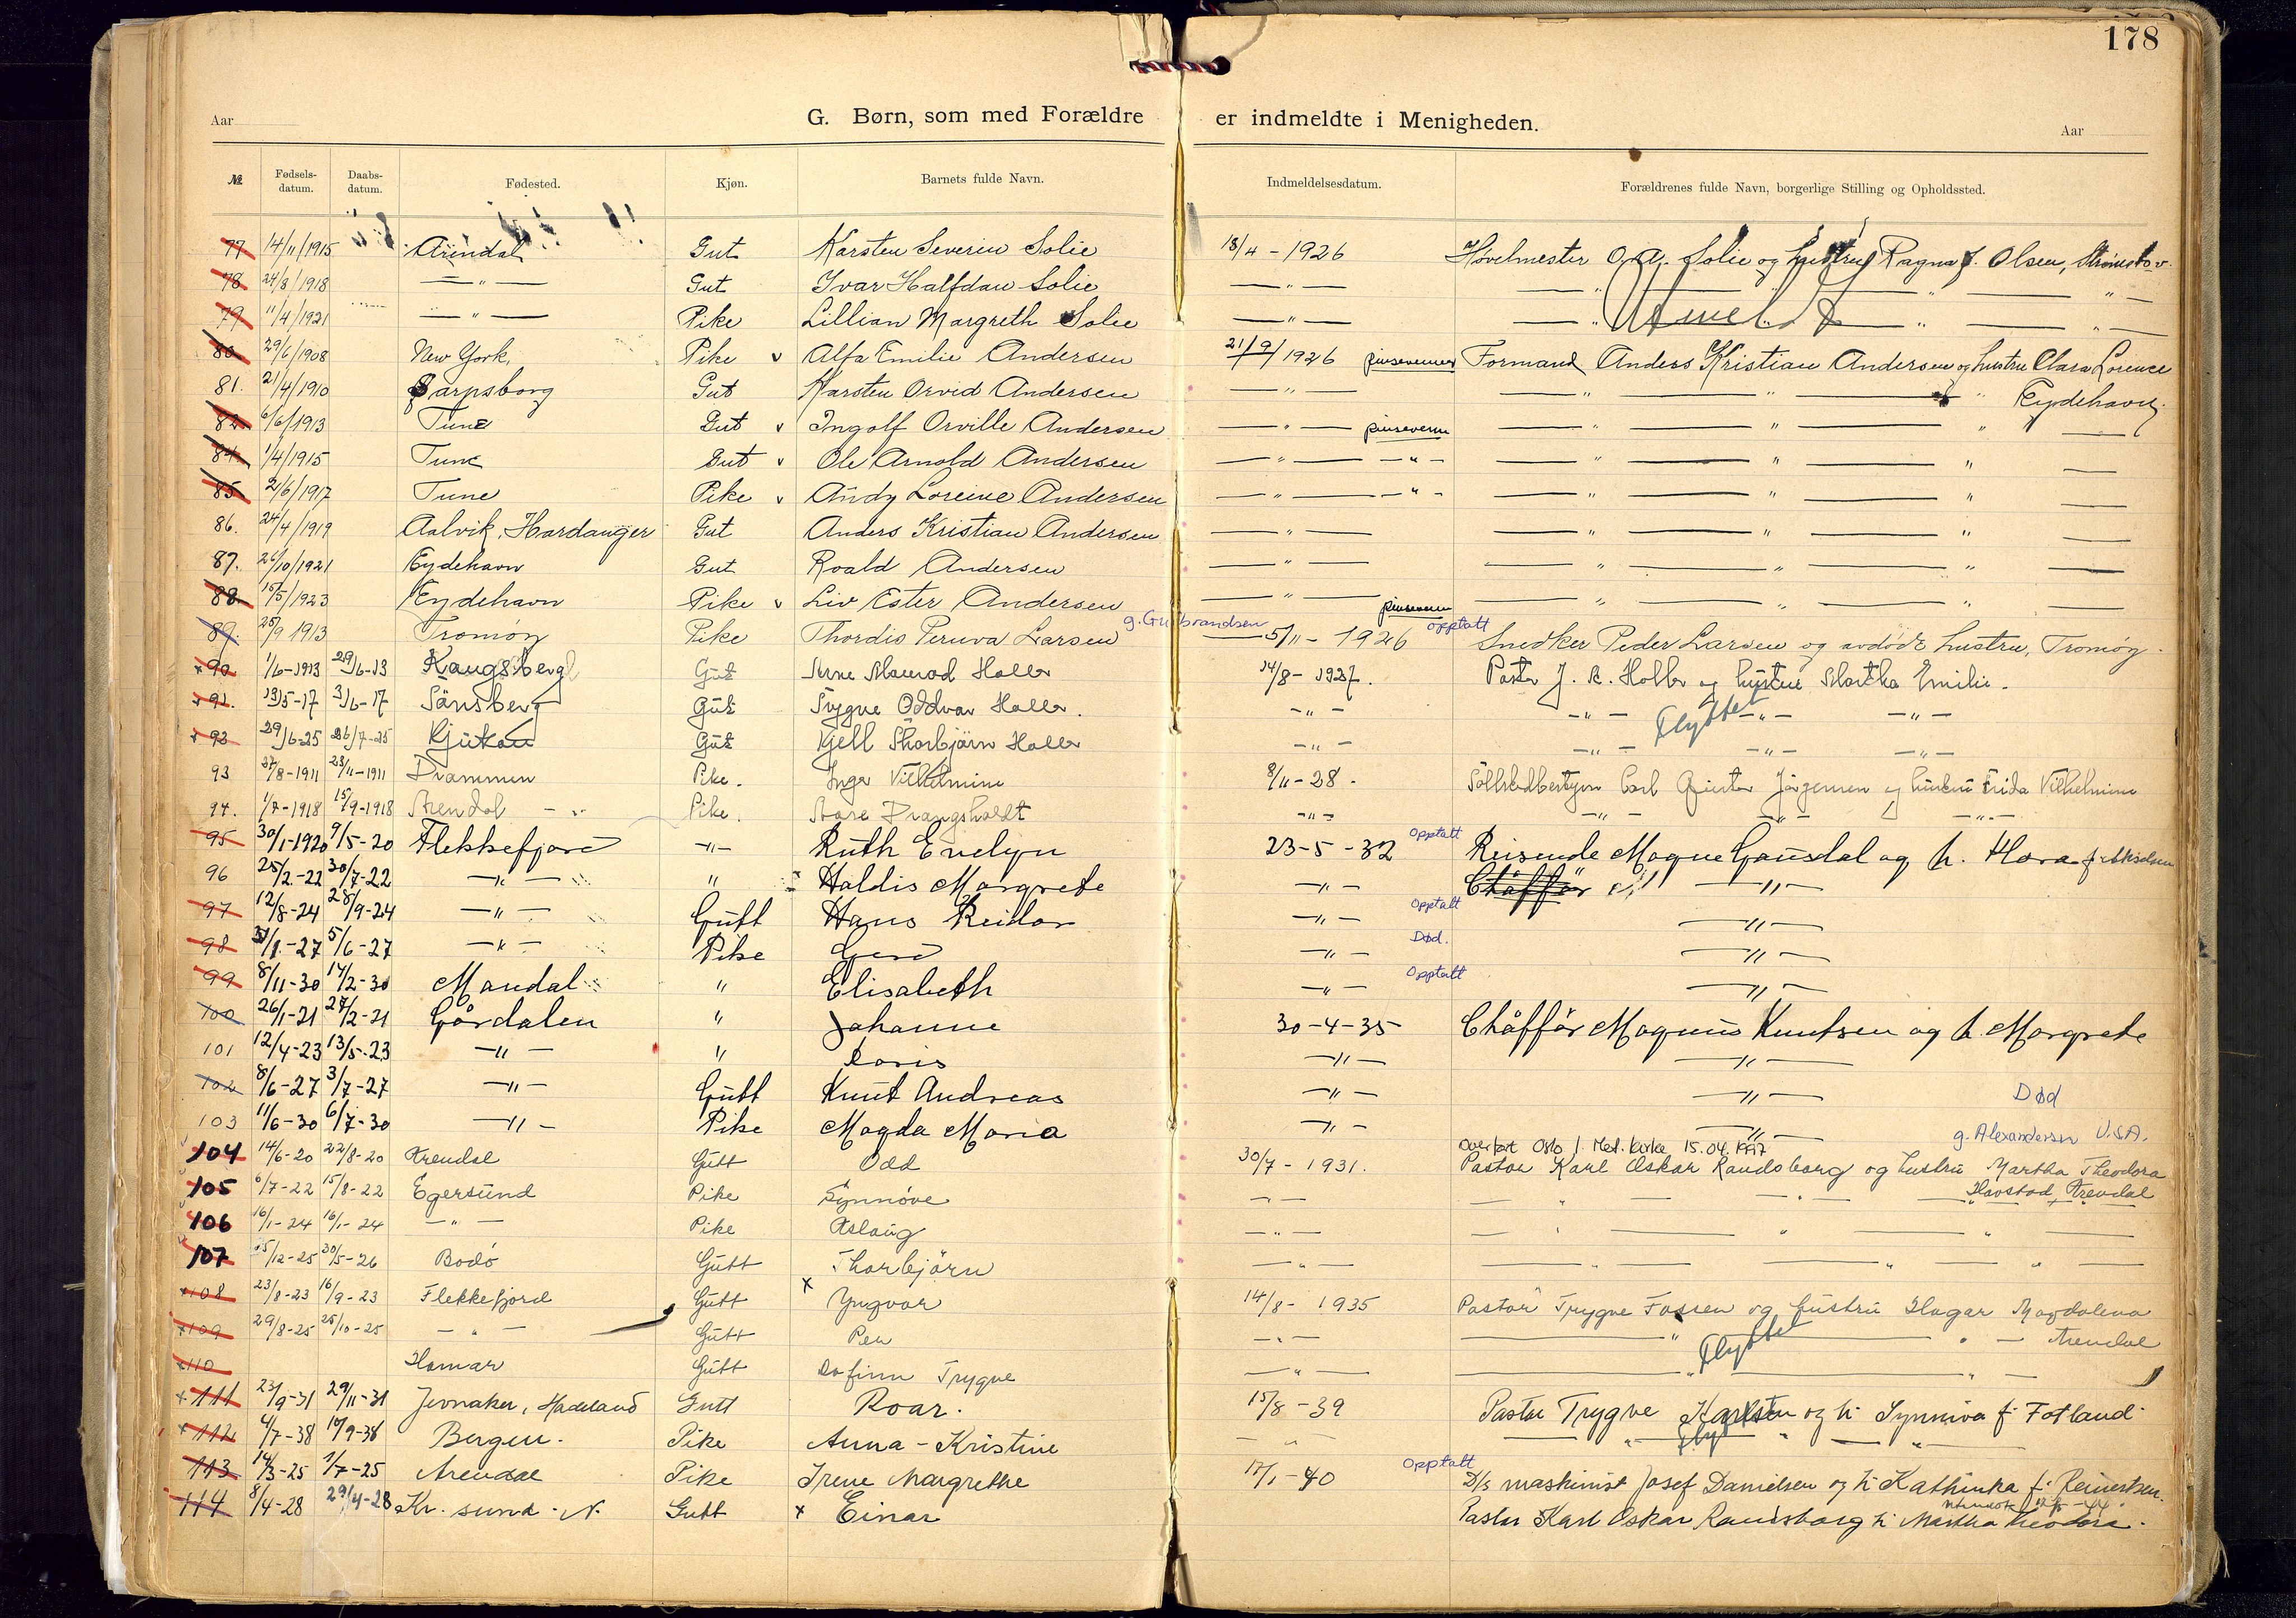 178
Aar G. Børn, som med Forældre er indmeldte i Menigheden. Aar
№ Fødsels-datum. Daabs-datum. Fødested. Kjøn. Barnets fulde Navn. Indmeldelsesdatum. Forældrenes fulde Navn, borgerlige Stilling og Opholdssted.
77 14/11/1915 Arendal Gut Karsten Severin Solie 18/4 - 1926 Høvelmester O. A. Solie og hustru Ragna f. Olsen,
78 24/8/1918 — " — Gut Ivar Halfdan Solie — " — — " — " — " —
79 11/4/1921 — " — Pike Lillian Margreth Solie — " — — " Utmeldt — " — " —
80. 29/6/1908 New York, Pike v Alfa Emilie Andersen 21/9/1926 pinsevenner Formand Anders Kristian Andersen og hustru Clara Lorence
81. 21/4/1910 Sarpsborg Gut Karsten Orvid Andersen — " — — " — " — " Eydehavn.
82 6/6/1913 Tune Gut v Ingolf Orville Andersen — " — pinsevenn — " — " — " —
84. 1/4/1915 Tune Gut v Ole Arnold Andersen — " — - " - — " — " — " —
85 2/6/1917 Tune Pike v Andy Loreine Andersen — " — - " - — " — " — " —
86. 24/4/1919 Aalvik, Hardanger Gut Anders Kristian Andersen — " — — " — " — " —
87. 26/10/1921 Eydehavn Gut Roald Andersen — " — — " — " — " —
88. 15/5/1923 Eydehavn Pike v Liv Ester Andersen — " — pinsevenn — " — " — " —
89. 25/9 1913 Tromøy Pike Thordis Peruva Larsen g. Gulbrandsen 5/11 - 1926 opptatt Snedker Peder Larsen og avdøde hustru, Tromøy.
x 90 1/6-1913 29/6-13 Kongsberg Gut Arne Holler 14/8 - 1927. Pastor J. A. Holler og hustru Martha Emilie.
x 91. 13/5-17 3/6-17 Tønsberg Gut Trygve Oddvar Holler. - " - - " - Flyttet - " - - " -
x 92 29/6-25 26/7-25 Rjukan Gut Kjell Thorbjørn Holler - " - - " - - " - - " -
93 27/8-1911 23/11-1911 Drammen Pike. Inger Vilhelmine 8/11-28. Carl Jørgensen og hustru Frida Vilhelmine
94. 1/7-1918 15/9-1918 Arendal - " - Pike. Aase Drangsholdt - " - - " - - " - - " -
95 30/1-1920 9/5-20 Flekkefjord - " - Ruth Evelyn 23-5-32 Opptatt Reisende Magne Gausdal og h. Hara f.
96 25/2-22 30/7-22 - " - " Haldis Margrete - " - Chåffør - " -
97 12/8-24 28/9-24 - " - Gutt Hans Reidar - " - Opptatt - " -
98 31/1-27 5/6-27 - " - Pike Gerd - " - Død. - " -
99 8/11-30 14/2-30 Mandal " Elisabeth - " - Opptatt - " -
100 26/1-21 27/2-21 Gårdalen " Johanne 30-4-35 Chåffør Magnus Knutsen og h. Margrete
101 12/4-23 13/5-23 - " - " Doris - " - - " -
102 8/6-27 3/7-27 - " - Gutt Knut Andreas - " - - " - Død
103 11/6-30 6/7-30 - " - Pike Magda Maria - " - - " - g. Alexandersen U.S.A.
Overført Oslo 1. Met. kirke 15.04.1947
104 14/6-20 22/8-20 Arendal Gutt Odd 30/7 - 1931. Pastor Karl Oskar Randsborg og hustru Martha Theodora
105 6/7-22 15/8-22 Egersund Pike Synnøve - " - — " — " — Havstad, Arendal
106 16/1-24 16/1-24 - " - Pike Aslaug - " - — " — " — " —
107 15/12-25 30/5-26 Bodø Gutt Thorbjørn - " - — " — " — " —
x 108 23/8-23 16/9-23 Flekkefjord Gutt x Yngvar 14/8 - 1935 Pastor Trygve Fossen og hustru Hagar Magdalena
x 109 29/8-25 25/10-25 - " - Gutt Per - " - — " Flyttet — " — Arendal
x 110 Hamar Gutt Dofinn Trygve - " - — " — " —
x 111 23/9-31 29/11-31 Jevnaker, Hadeland Gutt Roar. 15/8 - 39 Pastor Trygve Karlsten og h. Synnøva f. Fotland.
x 112 4/7-38 10/9-38 Bergen. Pike Anna-Kristine - " - — " Flyttet — " —
113 14/3-25 1/7-25 Arendal Pike Irene Margrethe 17/1-40 Opptatt D/s maskinist Josef Danielsen og h. Kathinka f. Reinertsen.
114 8/4-28 29/4-28 Kr. sund. N. Gutt x Einar Pastor Karl Oskar Randsborg h. Martha Theodora.